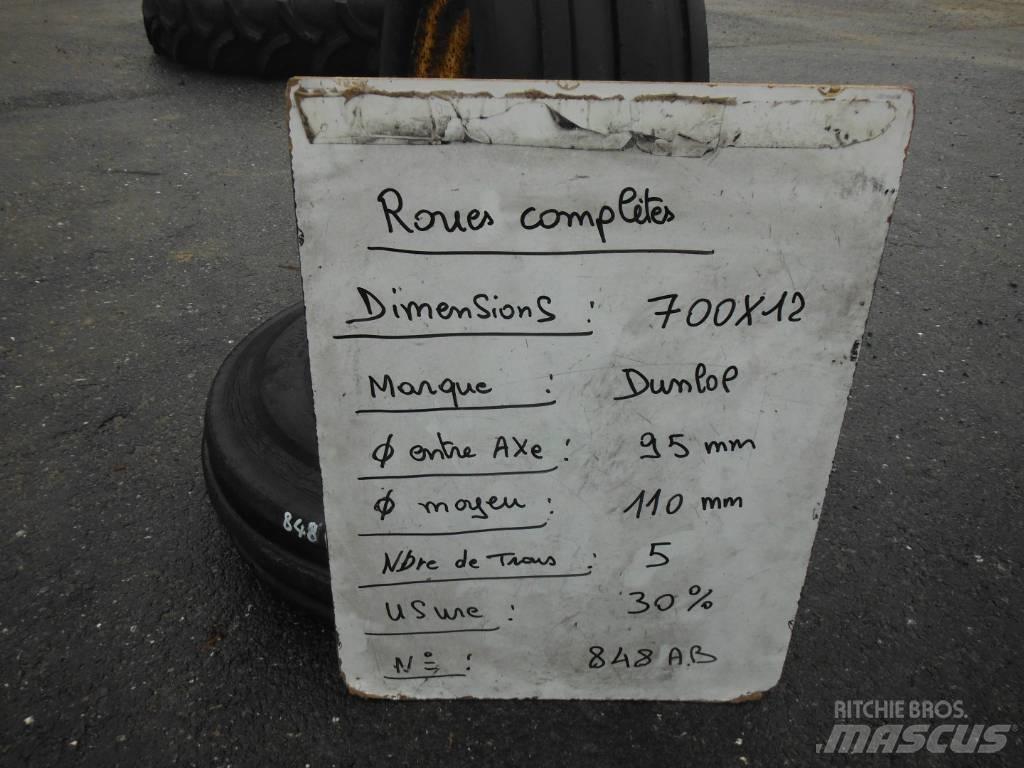 Roues complètes
Dimensions : 700X12
Marque : Dunlop
φ entre AXe : 95 mm
φ moyeu : 110 mm
Nbre de Trous : 5
USure : 30%
N° : 848 AB
848
RITCHIE BROS.
MASCUS